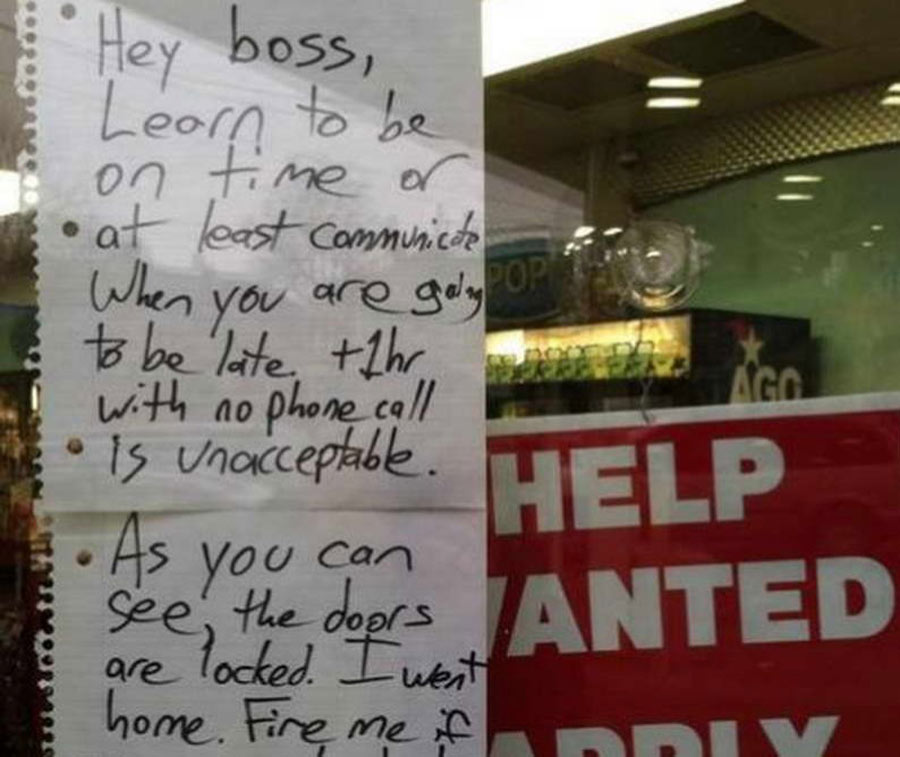 Hey boss,
Learn to be
on time or
at least communicate
When you are going
to be late. +1hr
with no phone call
is unacceptable.
As you can
see, the doors
are locked. I went
home. Fire me if
POP
AGO
HELP
WANTED
APPLY